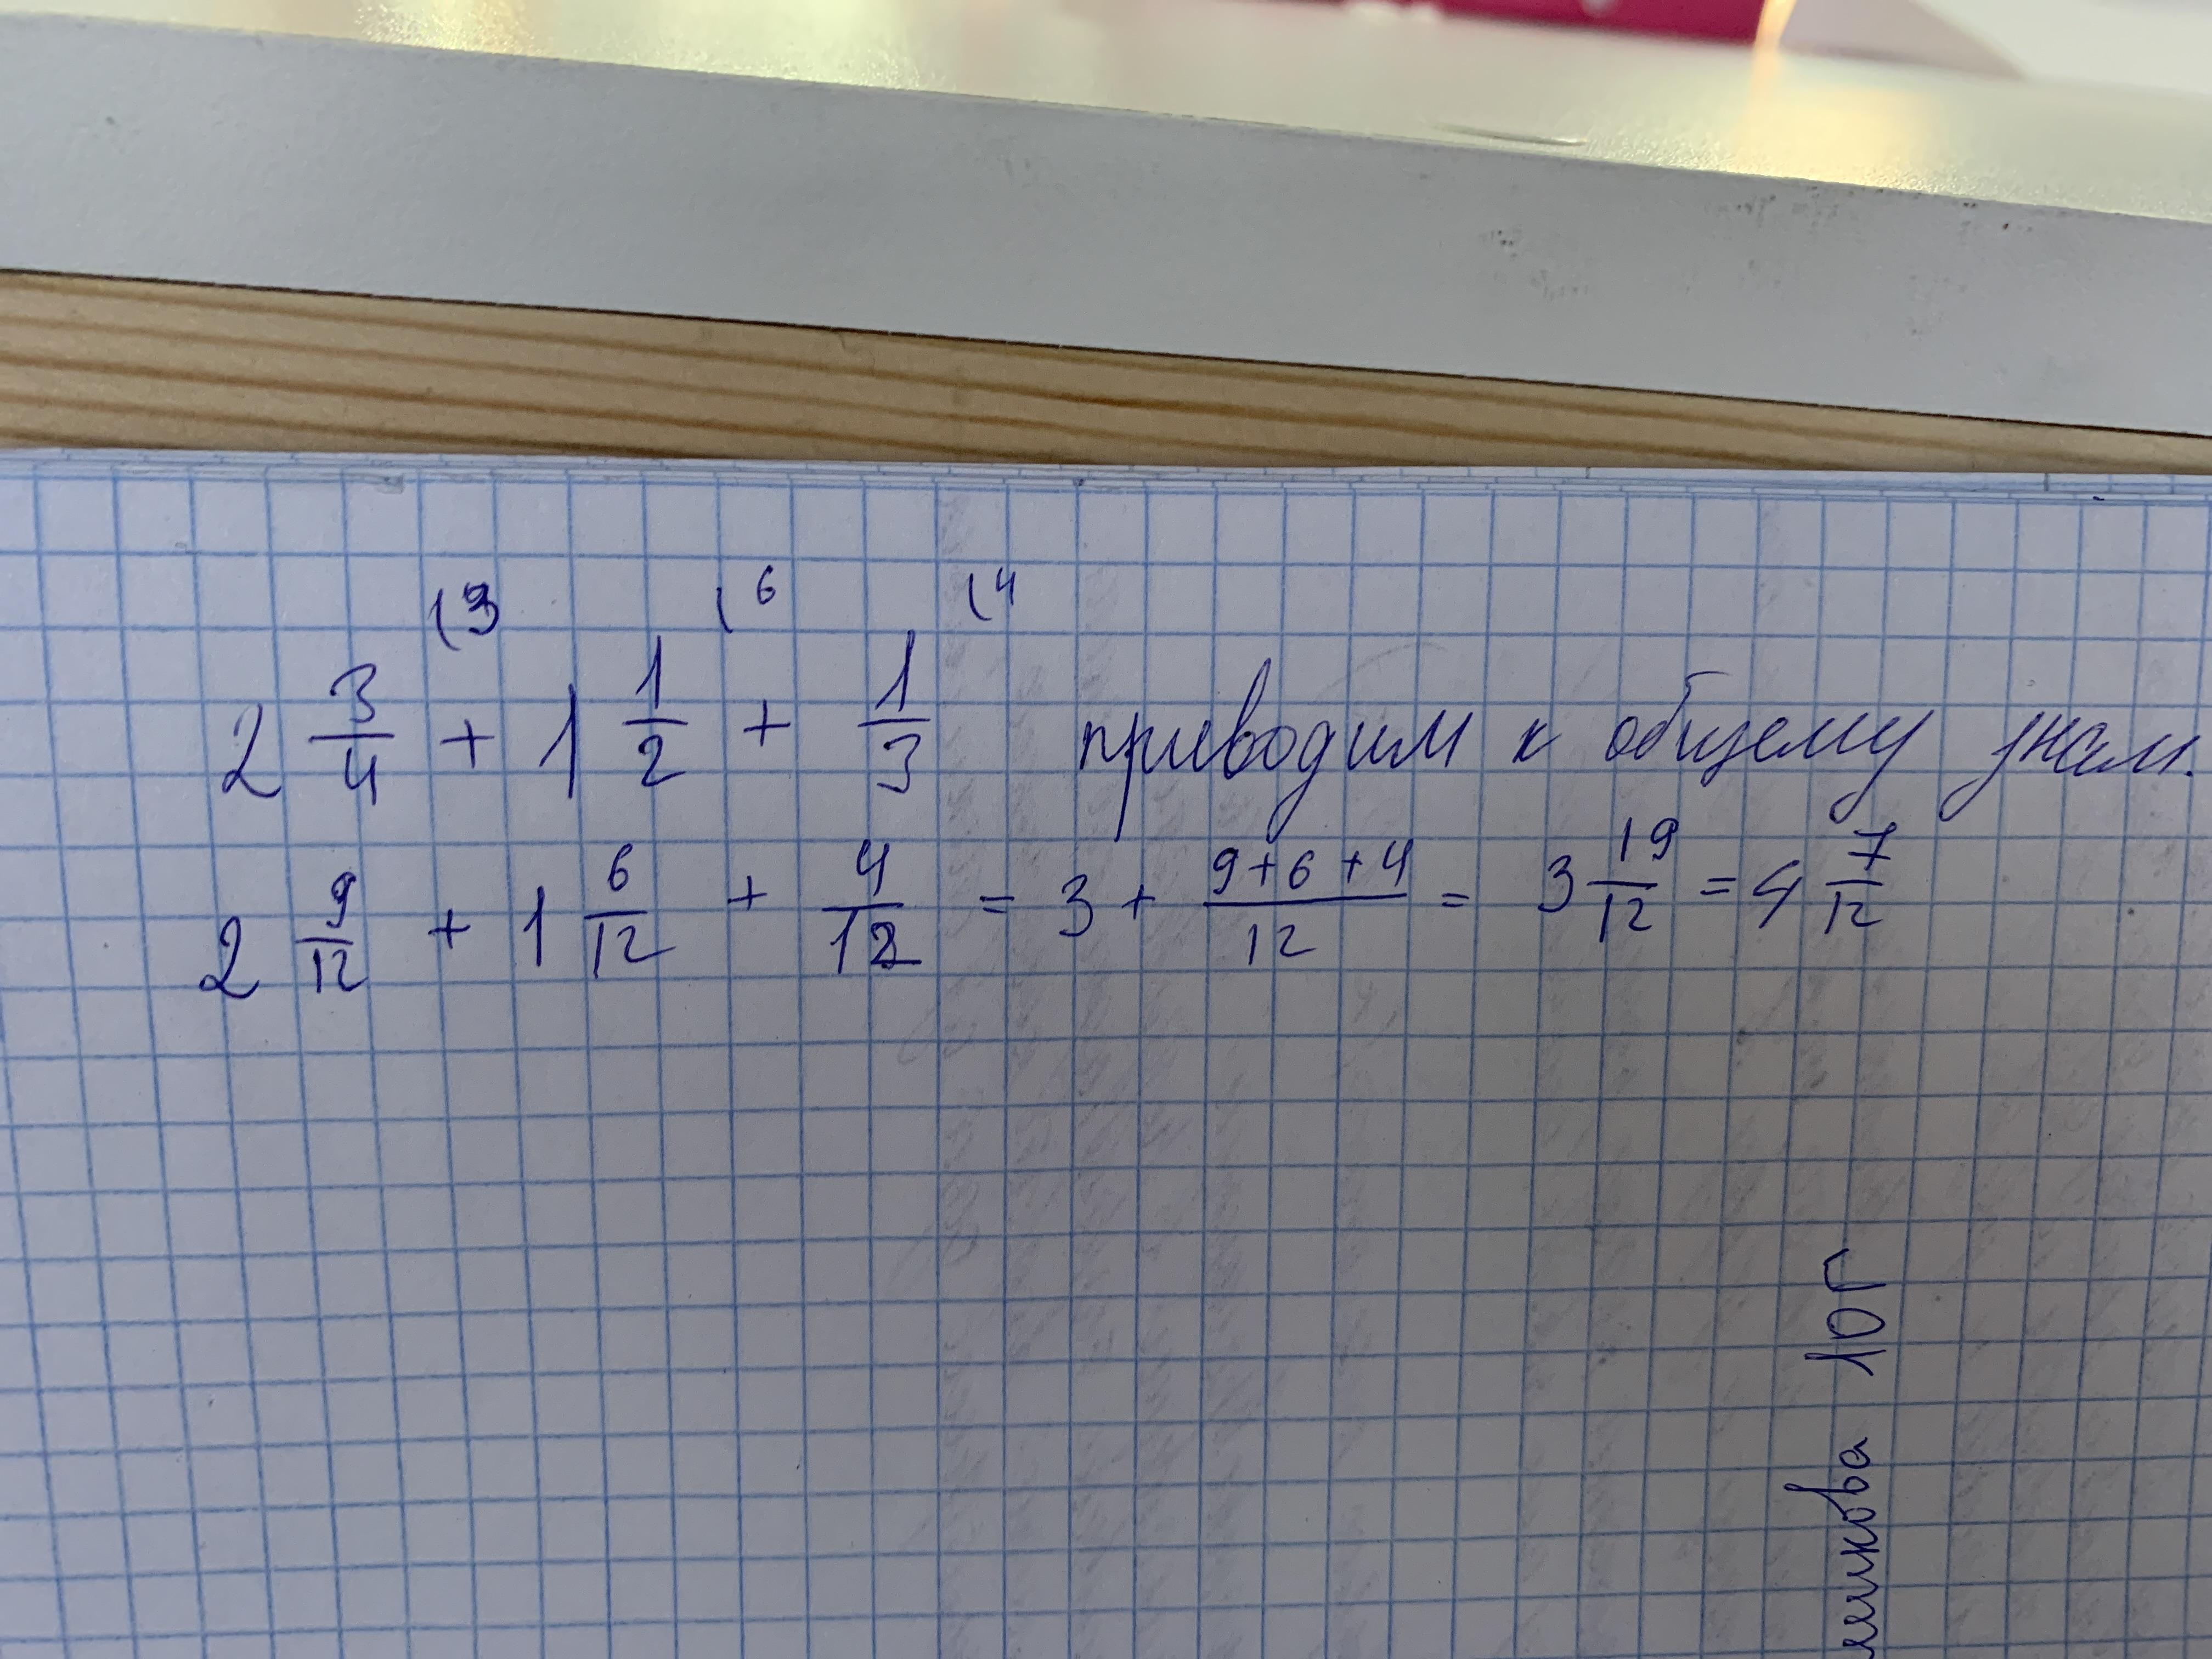 (3 (6 (4
2 3/4 + 1 1/2 + 1/3 приводим к общему знам.
2 9/12 + 1 6/12 + 4/12 = 3 + (9+6+4)/12 = 3 19/12 = 4 7/12
10Г